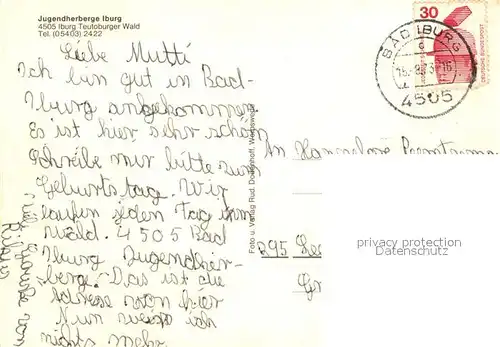 Jugendherberge Iburg
4505 Iburg Teutoburger Wald
Tel. (05403) 2422
30
DEUTSCHE BUNDESPOST
BAD IBURG
4505
Liebe Mutti
Ich bin gut in Bad-
Iburg angekommen
Es ist hier sehr schön
Schreibe mir bitte zum
Geburtstag. Wir
laufen jeden Tag im
Wald. 4505 Bad
Iburg Jugendher-
berge. Das ist die
Adrese von hier
Nun weiss ich
nichts mehr
viele von
Foto u. Verlag Rud.
An Hannelore
295
privacy protection
Datenschutz